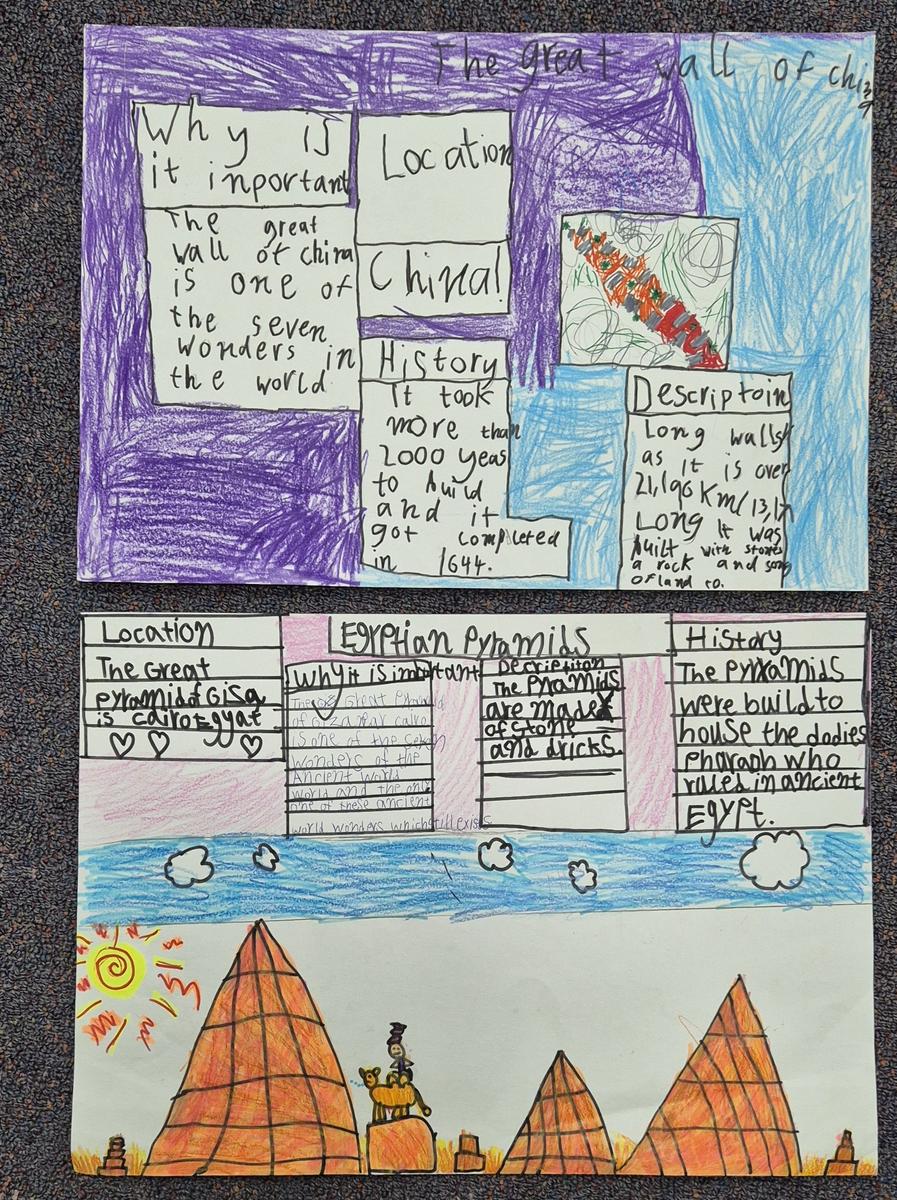 The great wall of china
Why is
it inportant
The great
wall of china
is one of
the seven
wonders in
the world
Location
China!
History
It took
more than
2000 yeas
to build
and it
got completed
in 1644.
Descriptoin
Long walls
as it is over
21,196 Km/ 13,17
Long It was
built with stones
a rock and
of land to.
Location
The Great
pyramid of Gisa
is cairo Egyat
Egyptian Pyramids
Why it is important
The Great Pyramid
of Giza near cairo
is one of the seven
wonders of the
Ancient World
world and the only
one of these ancient
world wonders which still exists
Decription
The Pyramids
are made
of stone
and dricks.
History
The Pyramids
were build to
house the dodies
pharaoh who
ruled in ancient
Egypt.